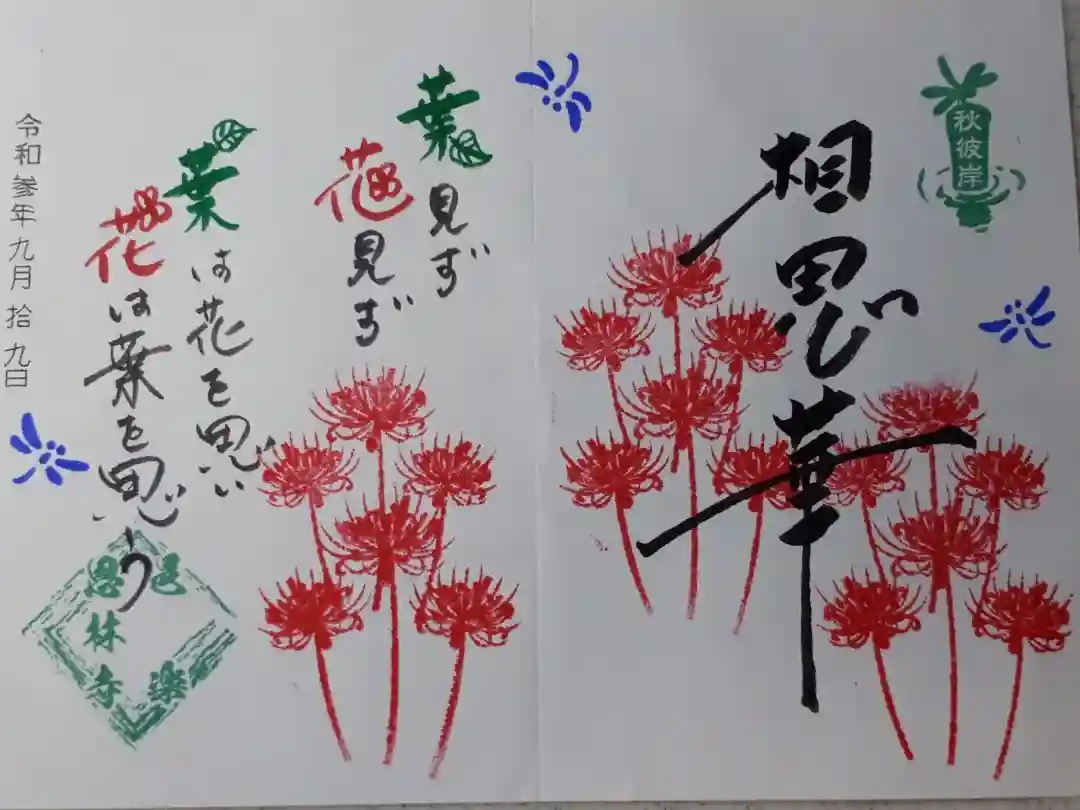 秋彼岸
相思華
葉見ず
花見ず
葉は花を思い
花は葉を思う
恩林寺
令和参年九月拾九日